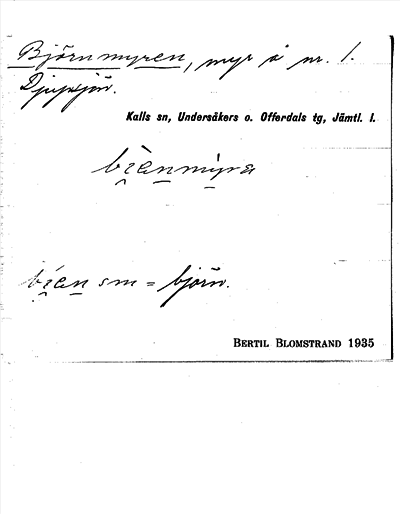 Björnmyren, myr å nr. 1.
Djupsjön.
Kalls sn, Undersåkers o. Offerdals tg, Jämtl. l.
bi̯en̠mỳra
bí̯en̠ sm = björn.
BERTIL BLOMSTRAND 1935